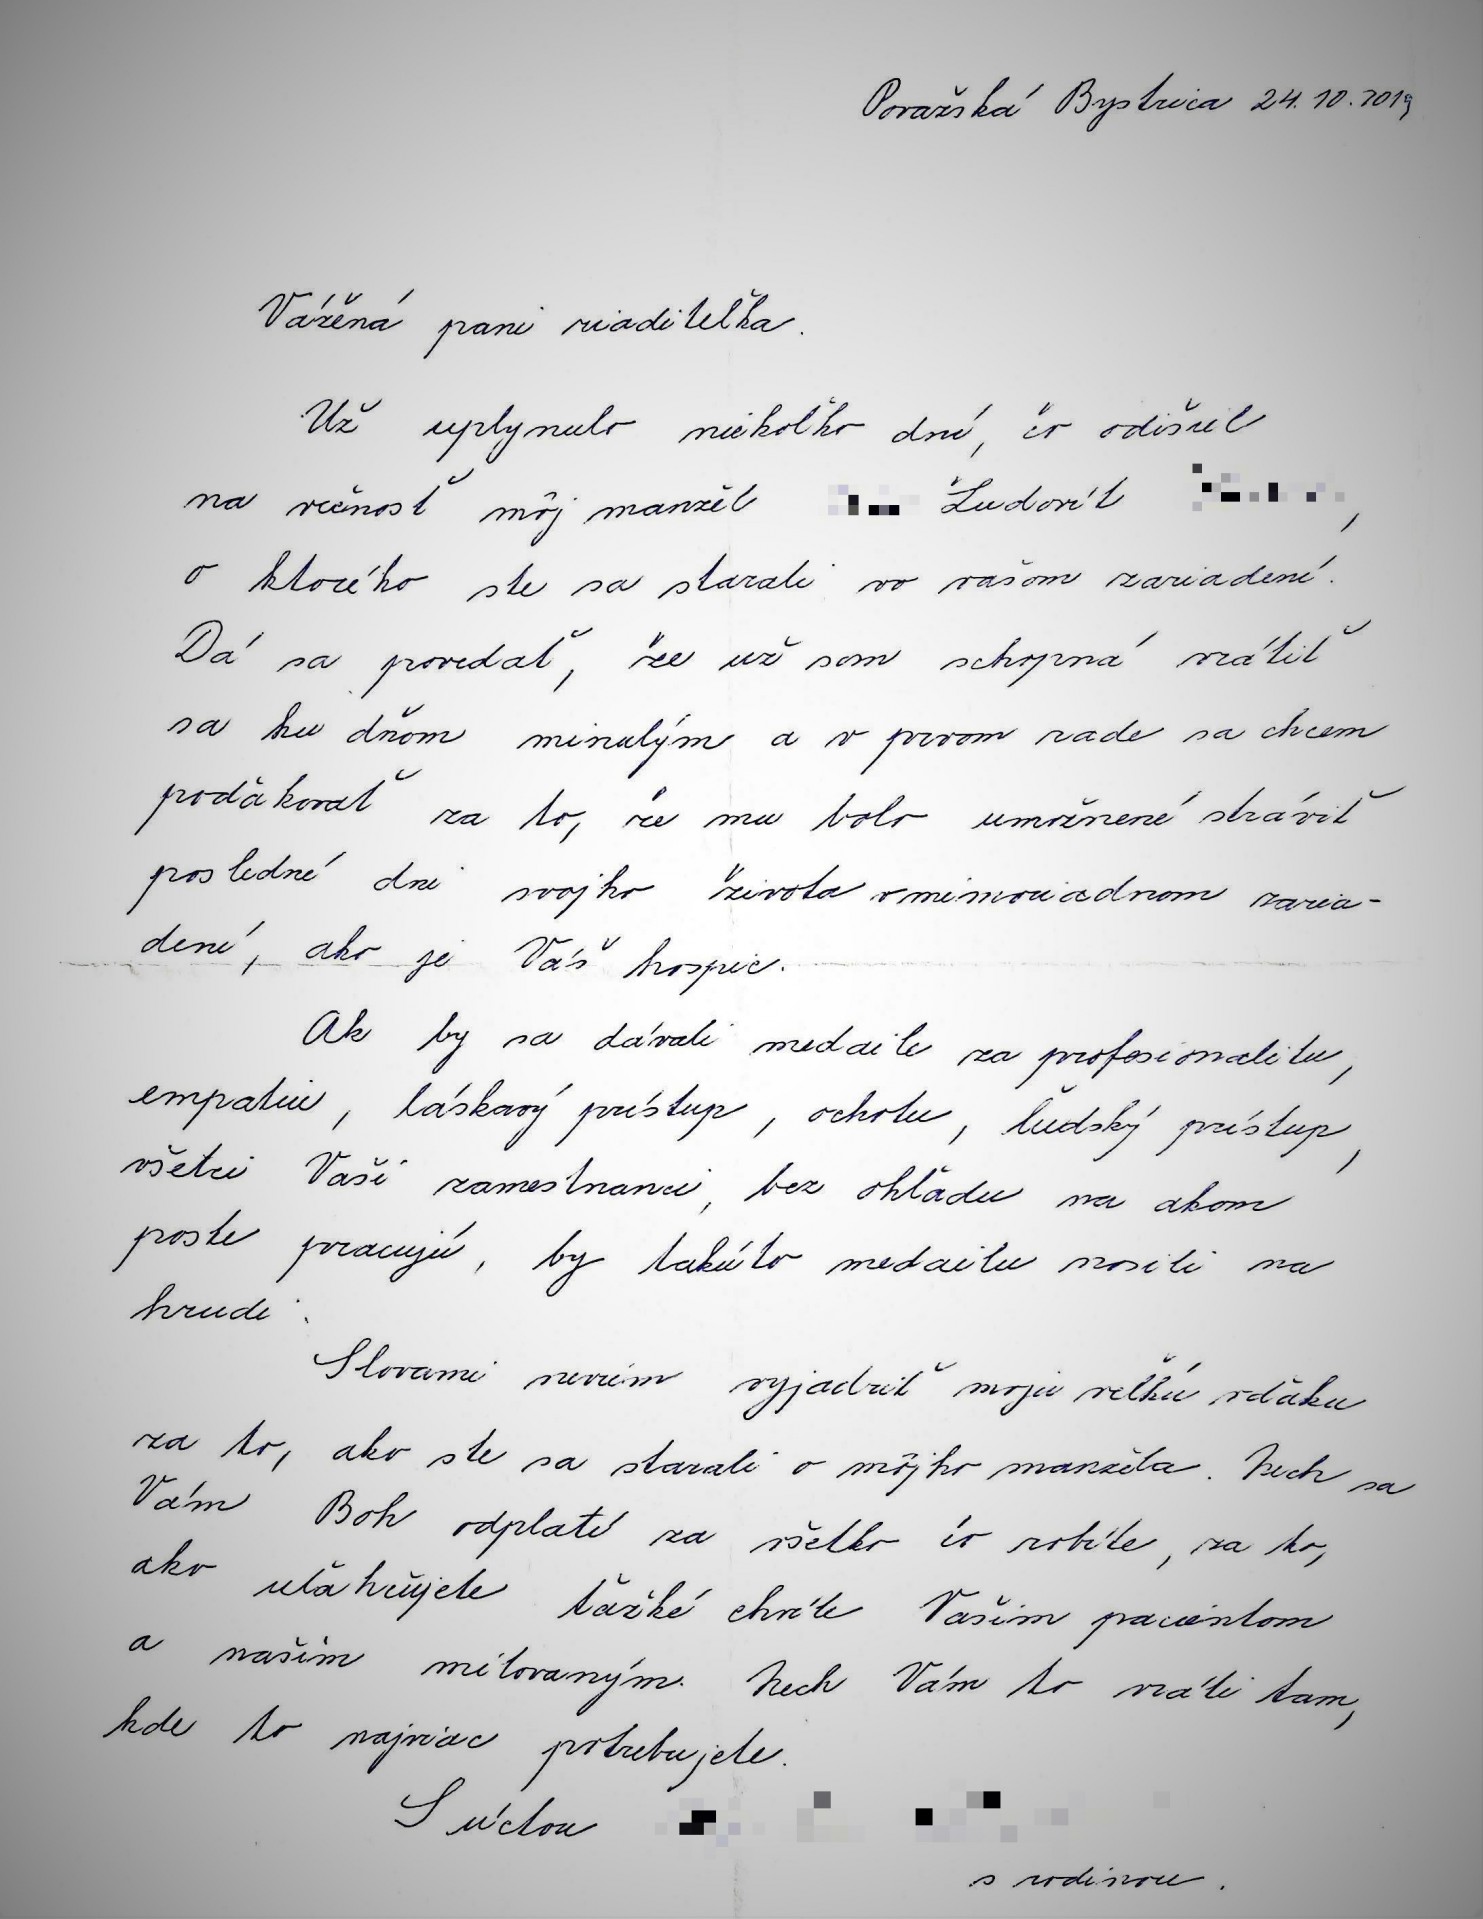 Považská Bystrica 24.10.2019
Vážená pani riaditeľka.
Už uplynulo niekoľko dní, čo odišiel
na večnosť môj manžel Ľudovít ,
o ktorého ste sa starali vo vašom zariadení.
Dá sa povedať, že už som schopná vrátiť
sa ku dňom minulým a v prvom rade sa chcem
poďakovať za to, že mu bolo umožnené stráviť
posledné dni svojho života v mimoriadnom zaria-
dení, ako je Váš hospic.
Ak by sa dávali medaile za profesionalitu,
empatiu, láskavý prístup, ochotu, ľudský prístup,
všetci Vaši zamestnanci, bez ohľadu na akom
poste pracujú, by takúto medailu nosili na
hrudi.
Slovami neviem vyjadriť moju veľkú vďaku
za to, ako ste sa starali o môjho manžela. Nech sa
Vám Boh odplatí za všetko čo robíte, za to,
ako uľahčujete ťažké chvíle Vašim pacientom
a našim milovaným. Nech Vám to vráti tam,
kde to najviac potrebujete.
S úctou
s rodinou.